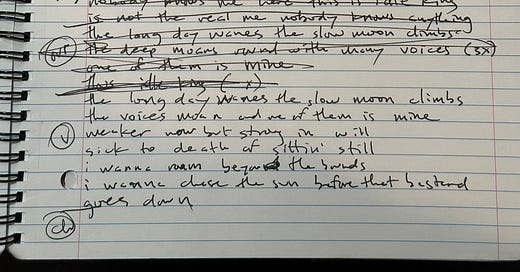 nobody knows me here this is idle king
is not the real me nobody knows anything
the long day wanes the slow moon climbs
the deep moans round with many voices (3x)
one of them is mine
this idle king ( x)
the long day wanes the slow moon climbs
the voices moan and one of them is mine
(V) weaker now but strong in will
sick to death of sittin' still
i wanna roam beyond the bounds
i wanna chase the sun before that bastard
goes down
(ch)